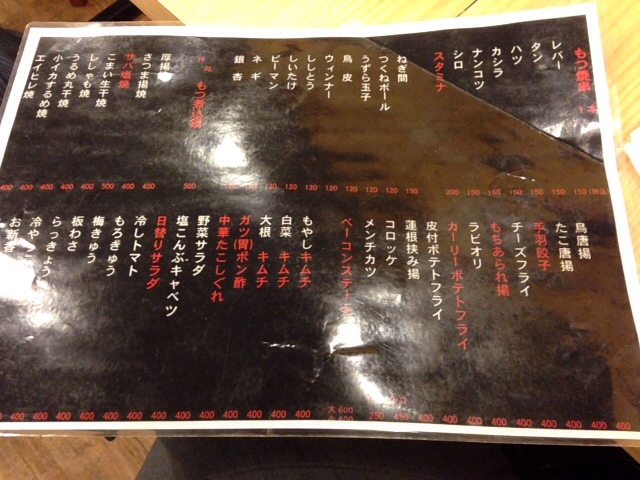 もつ焼串
レバー 150
タン 150
ハツ 150
カシラ 150
ナンコツ 150
シロ 150
スタミナ 200
ねぎ間 150
つくねボール 120
うずら玉子 120
鳥皮 120
ウィンナー 120
ししとう 120
しいたけ 120
ピーマン 120
ネギ
銀杏
もつ煮込
500
厚揚
さつま揚焼 400
サバ塩焼 400
こまい生干焼 500
ししゃも焼 400
うるめ丸干焼 400
小イカするめ焼 400
エイヒレ焼 400
鳥唐揚
たこ唐揚
手羽餃子
チーズフライ
もちあられ揚
ラビオリ
カーリーポテトフライ
皮付ポテトフライ
蓮根挟み揚
コロッケ
メンチカツ 250
ベーコンステーキ 大600 小400
もやしキムチ 400
白菜キムチ 400
大根キムチ 400
ガツ(胃)ポン酢 400
中華たこしぐれ 400
野菜サラダ 400
塩こんぶキャベツ 400
日替りサラダ 400
冷しトマト 400
もろきゅう 400
梅きゅう 400
板わさ 400
らっきょう 400
冷やっこ
お新香